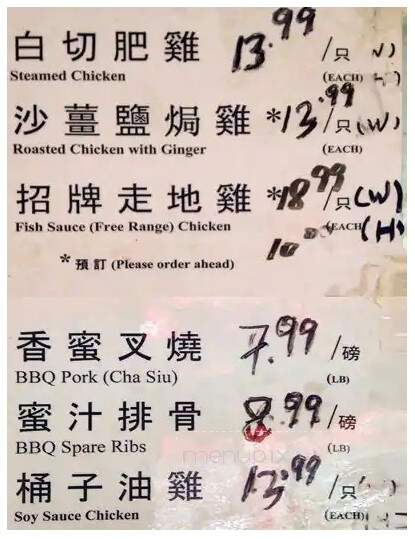 白切肥雞 13.99 /只
Steamed Chicken (EACH)
沙薑鹽焗雞 *13.99 /只 (W)
Roasted Chicken with Ginger (EACH)
招牌走地雞 *18.99 /只 (W)
Fish Sauce (Free Range) Chicken (EACH) (H)
* 預訂 (Please order ahead)
香蜜叉燒 7.99 /磅
BBQ Pork (Cha Siu) (LB)
蜜汁排骨 8.99 /磅
BBQ Spare Ribs (LB)
menupix
桶子油雞 13.99 /只
Soy Sauce Chicken (EACH)